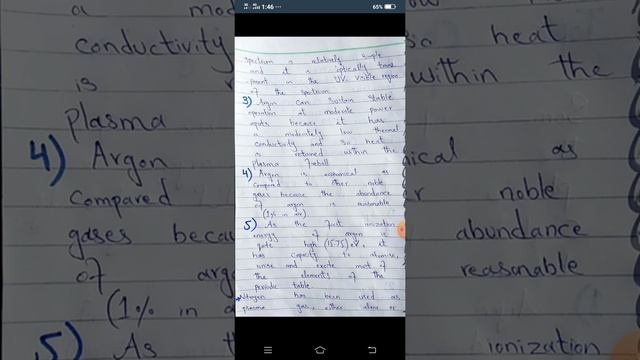 1:46
65%
spectrum is relatively simple
and it is optically trans
parent in the UV visible region
of the spectrum
3) Argon can sustain stable
operation at moderate power
because it has
a moderately low thermal
conductivity and so heat
is retained within the
plasma fireball
4) Argon is economical as
compared to other noble
gases because the abundance
of argon is reasonable
(1% in air)
5) As the first ionization
energy of argon is
quite high (15.75) ev, it
has capacity to atomise,
ionise and excite most of
the elements of the
periodic table
Nitrogen has been used as
plasma gas, either alone or
conductivity so heat
is within the
plasma
4) Argon as
compared noble
gases abundance
of reasonable
(1% in
5) As ionization